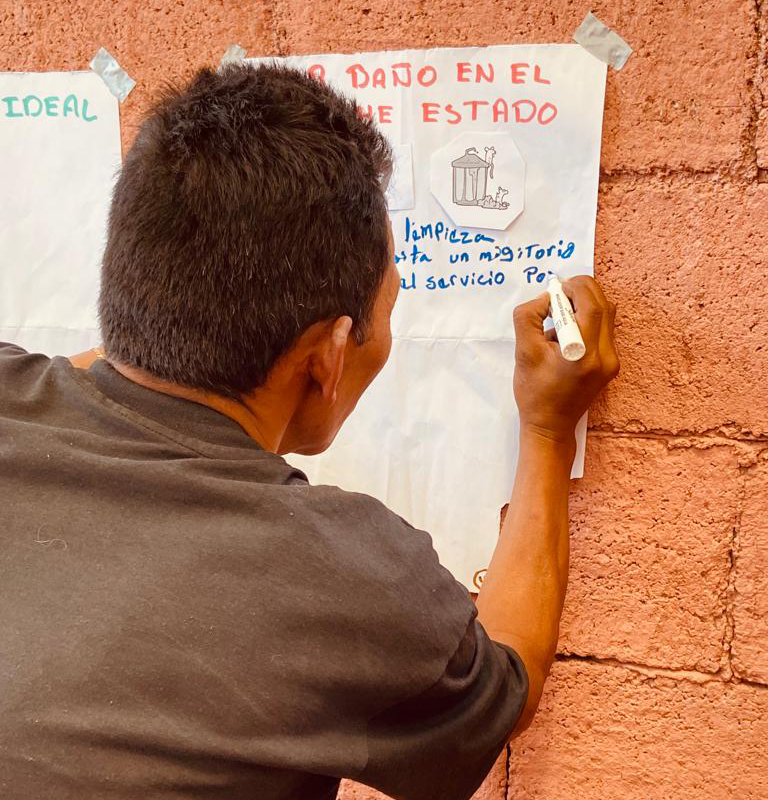 IDEAL
R DAÑO EN EL
HE ESTADO
limpieza
sta un migitorio
al servicio Po